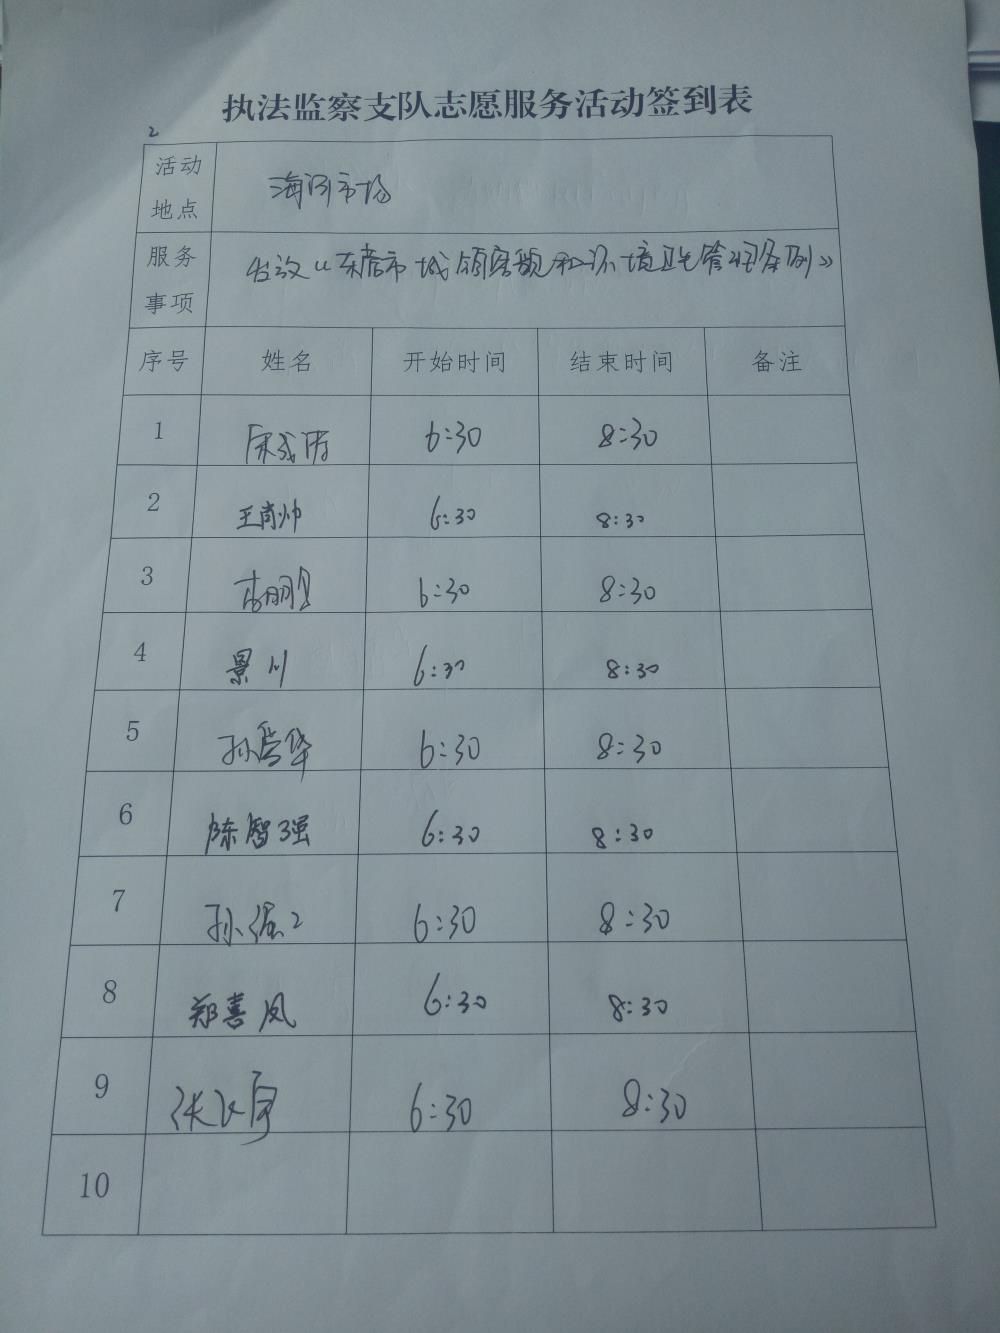 执法监察支队志愿服务活动签到表
2
活动地点 海河市场
服务事项 发放《东营市城镇容貌和环境卫生管理条例》
序号 姓名 开始时间 结束时间 备注
1 6:30 8:30
2 王肖帅 6:30 8:30
3 6:30 8:30
4 景川 6:30 8:30
5 孙 华 6:30 8:30
6 陈智强 6:30 8:30
7 孙 6:30 8:30
8 郑喜凤 6:30 8:30
9 张 6:30 8:30
10